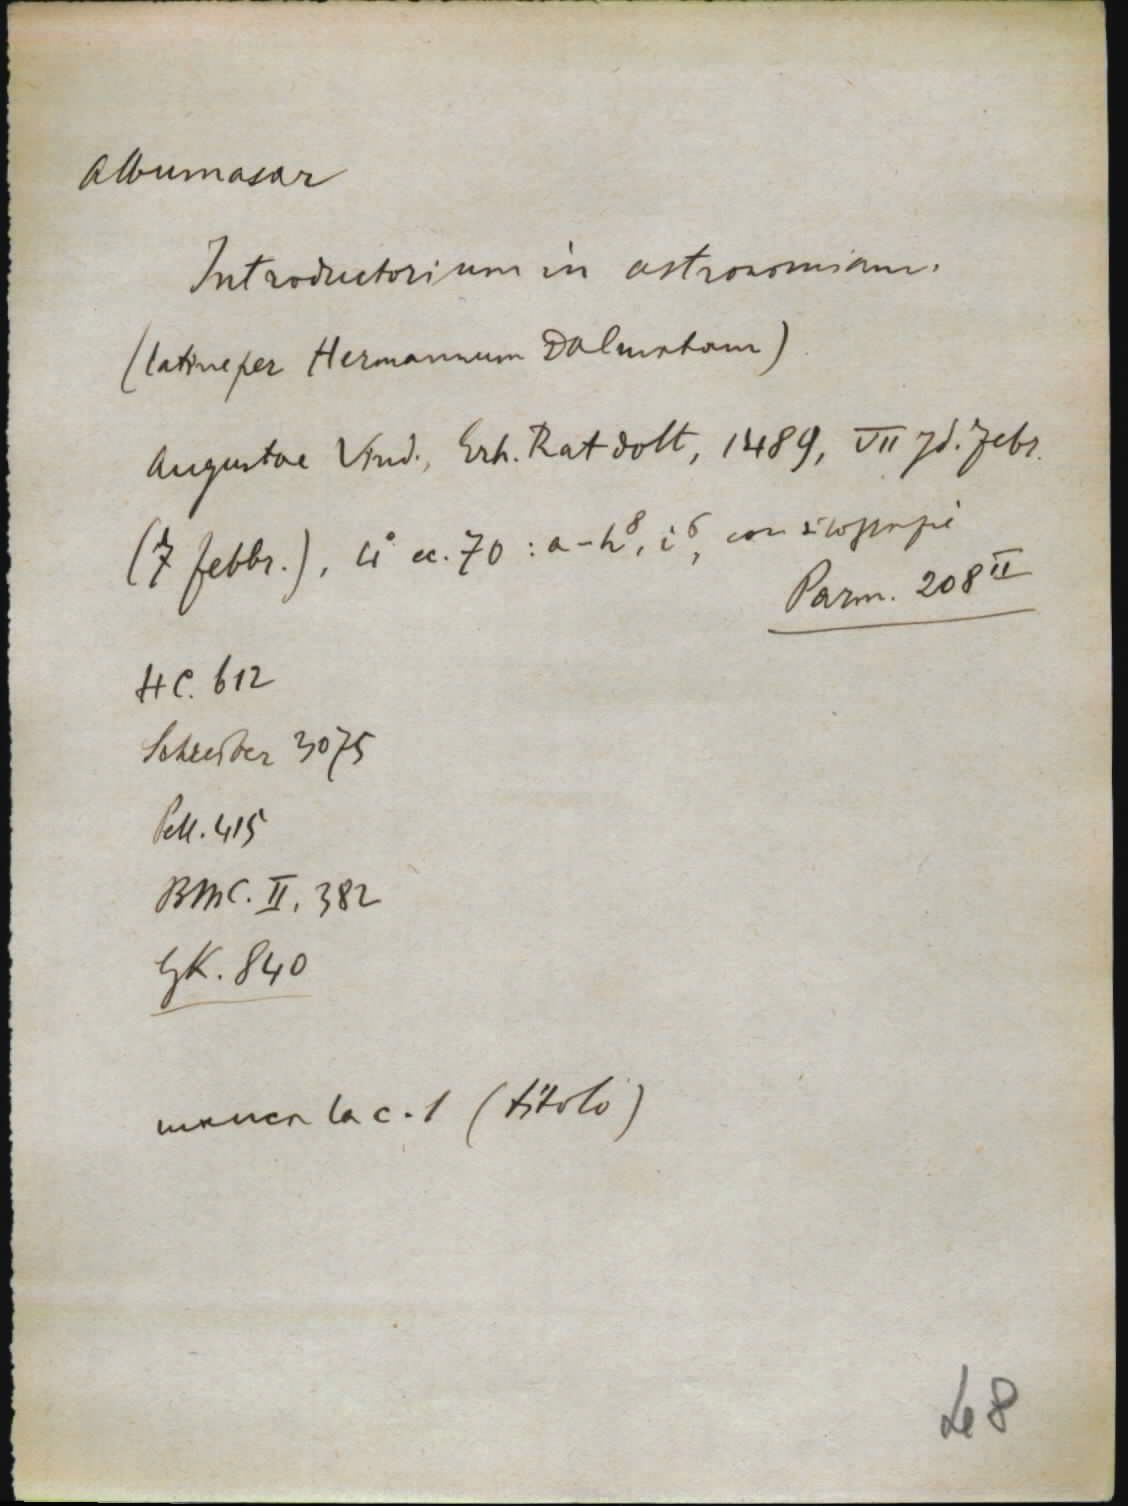 Albumasar
Introductorium in astronomiam.
(latine per Hermannum Dalmatam)
Augustae Vind., Erh. Ratdolt, 1489, VII Id. Febr.
(7 febbr.), 4° cc. 70 : a-h⁸, i⁶, con silografie
Parm. 208 II
HC. 612
Schreiber 3075
Pell. 415
BMC. II, 382
GK. 840
manca la c. 1 (titolo)
48